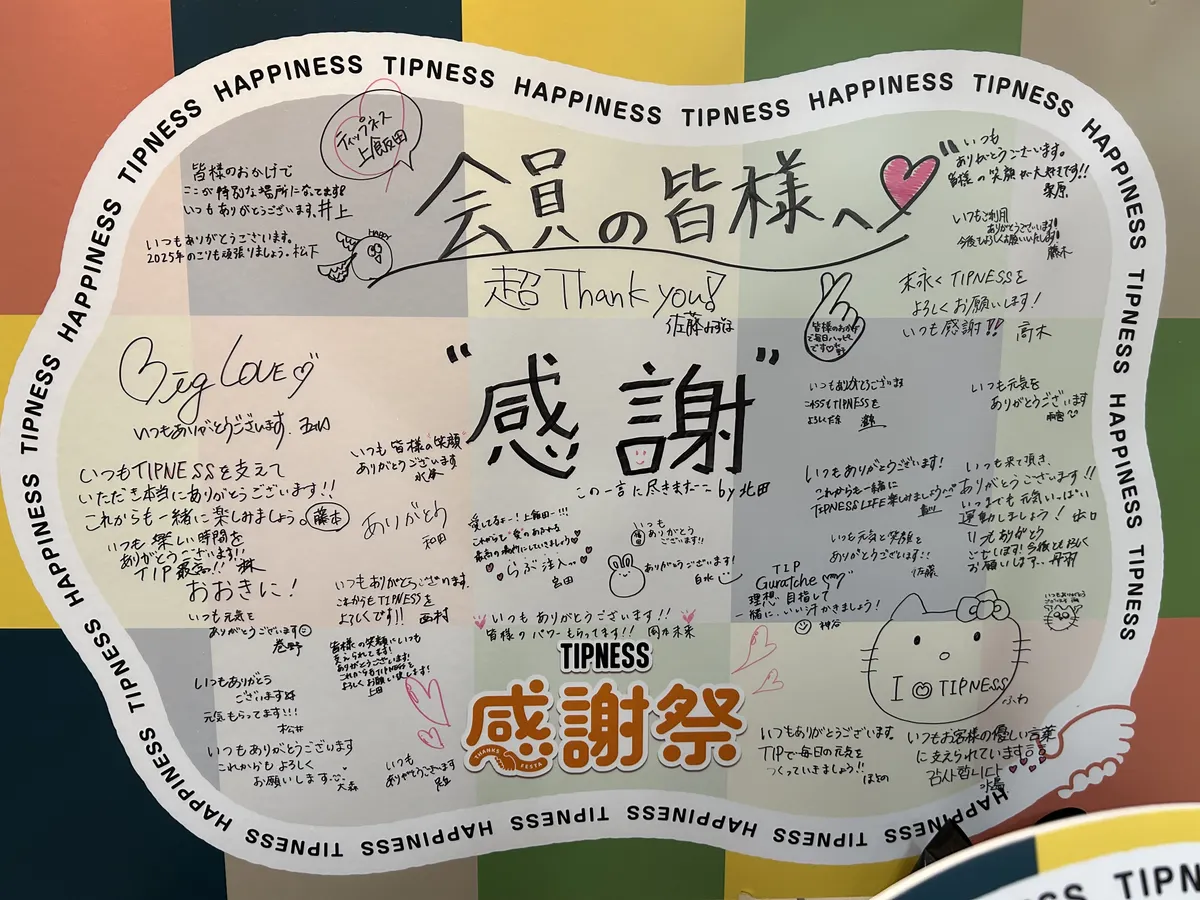 TIPNESS HAPPINESS TIPNESS HAPPINESS TIPNESS HAPPINESS TIPNESS HAPPINESS TIPNESS HAPPINESS TIPNESS HAPPINESS TIPNESS HAPPINESS TIPNESS HAPPINESS TIPNESS HAPPINESS TIPNESS HAPPINESS
ティップネス
上飯田
会員の皆様へ
皆様のおかげで
ここが特別な場所になってます!
いつもありがとうございます。井上
いつもありがとうございます。
2025年のこりも頑張りましょう。松下
HAPPY
"いつも
ありがとうございます。
皆様の笑顔が大好きです!!
栗原
いつもご利用
ありがとうございます!
今後もよろしくお願いいたします!
藤木
超 Thank you!
佐藤みずほ
皆様のおかげ
で毎日ハッピー
です
末永くTIPNESSを
よろしくお願いします!
いつも感謝!! 高木
Big LOVE
いつもありがとうございます。
"感謝"
この一言に尽きます by 北田
いつも皆様の笑顔
ありがとうございます
いつもTIPNESSを支えて
いただき本当にありがとうございます!!
これからも一緒に楽しみましょう。藤本
いつも楽しい時間を
ありがとうございます!!
TIP最高!!
おおきに!
ありがとう
和田
いつもありがとうございます
これからもTIPNESSを
いつも元気を
ありがとうございます
いつもありがとうございます!
これからも一緒に
TIPNESS LIFE楽しみましょう
いつも来て頂き、
ありがとうございます!!
いつまでも元気いっぱい
運動しましょう!
いつもありがとう
ございます!今後もよろしく
お願いします。丹羽
愛してるよー!上飯田ー!!!
これからも"愛"のあふれる
最高の場所にしていきましょう
らぶ注入
宮田
いつも
ありがとう
ございます!!
ありがとうございます!
白水
いつも元気と笑顔を
ありがとうございます!!
佐藤
TIP
Guratche
理想 目指して
一緒に、いい汗かきましょう!
神谷
いつもありがとうございます。
これからもTIPNESSを
よろしくです!! 西村
いつも元気を
ありがとうございます
巻野
いつもありがとうございます!!
皆様のパワーもらってます!! 岡本未来
皆様の笑顔にいつも
支えられてます!
ありがとうございます!
これからもTIPNESSを
よろしくお願い致します!
上田
TIPNESS
感謝祭
THANKS FESTA
I TIPNESS
ふわ
いつもありがとう
ございます
元気もらってます!!!
松井
いつもありがとうございます
これからも よろしく
お願いします
大森
いつも
ありがとうございます
いつもありがとうございます。
TIPで毎日の元気を
つくっていきましょう!!
いつもお客様の優しい言葉
に支えられています
감사합니다
TIPN